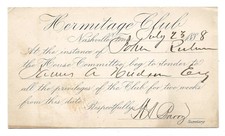 Hermitage Club
Nashville, July 23 1888
At the instance of John
the House Committee beg to tender to
all the privileges of the Club for two weeks
from this date.
Respectfully,